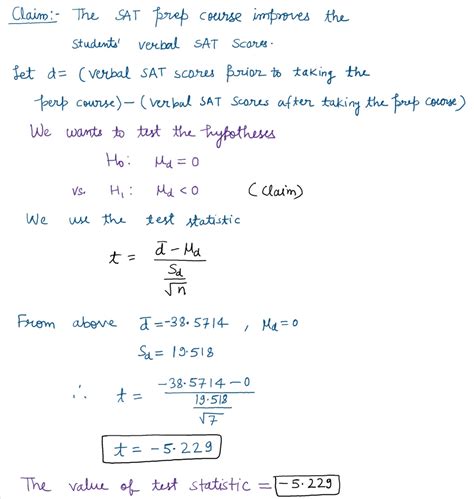 Claim:- The SAT prep course improves the
students' verbal SAT scores.
Let d = (verbal SAT scores prior to taking the
perp course) - (verbal SAT scores after taking the prep course)
We wants to test the hyfotheses
H₀: μd = 0
vs. H₁: μd < 0 (Claim)
We use the test statistic
t = (d̄ - μd) / (Sd / √n)
From above d̄ = -38.5714, μd = 0
Sd = 19.518
∴ t = (-38.5714 - 0) / (19.518 / √7)
t = -5.229
The value of test statistic = -5.229